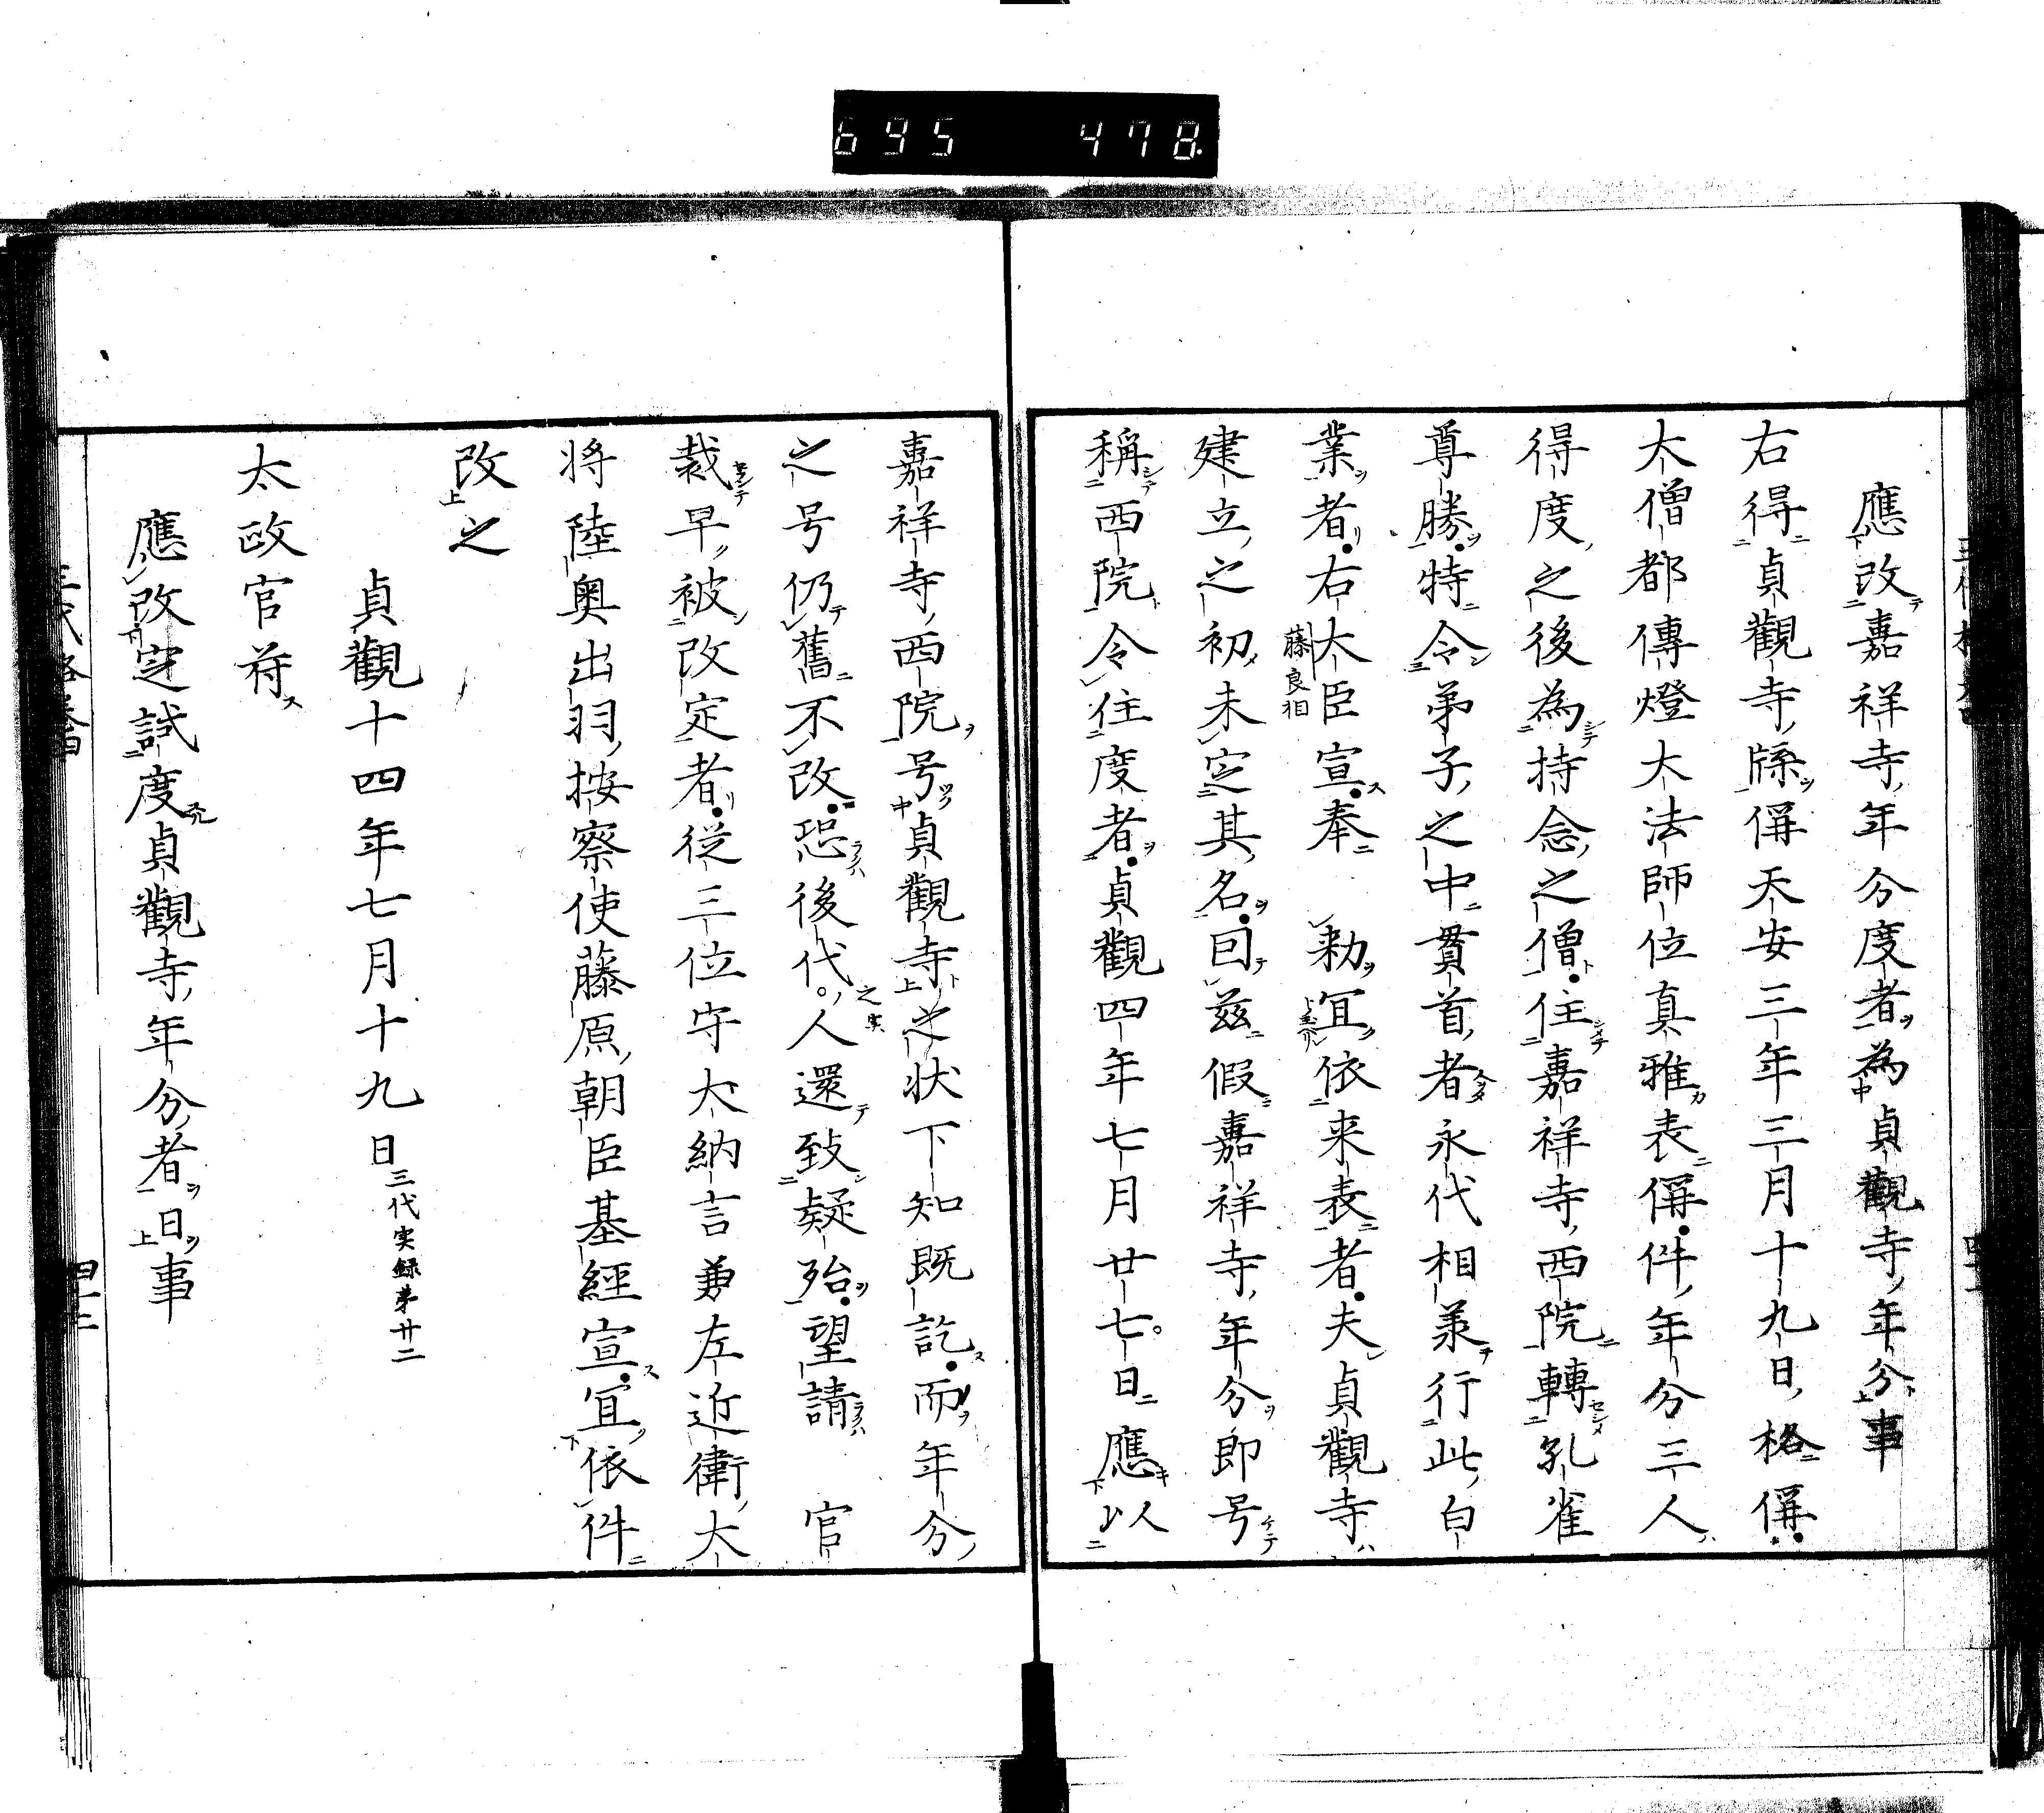 695 478
應改嘉祥寺年分度者為貞觀寺年分事
右得貞觀寺牒偁天安三年三月十九日格偁
大僧都傳燈大法師位真雅表偁件年分三人
得度之後為持念之僧住嘉祥寺西院轉孔雀
尊勝特令弟子之中貫首者永代相兼行此白
業者右大臣宣奉　勅冝依来表者夫貞觀寺
藤良相
建立之初未定其名回茲假嘉祥寺年分即号
稱西院令住度者貞觀四年七月廿七日應以
嘉祥寺西院号貞觀寺之状下知既訖而年分
之号仍舊不改恐後代人還致疑殆望請　官
之実
裁早被改定者従三位守大納言兼左近衛大
将陸奥出羽按察使藤原朝臣基經宣冝依件
改之
貞觀十四年七月十九日三代実録第廿二
太政官符
應改定試度貞觀寺年分者日事